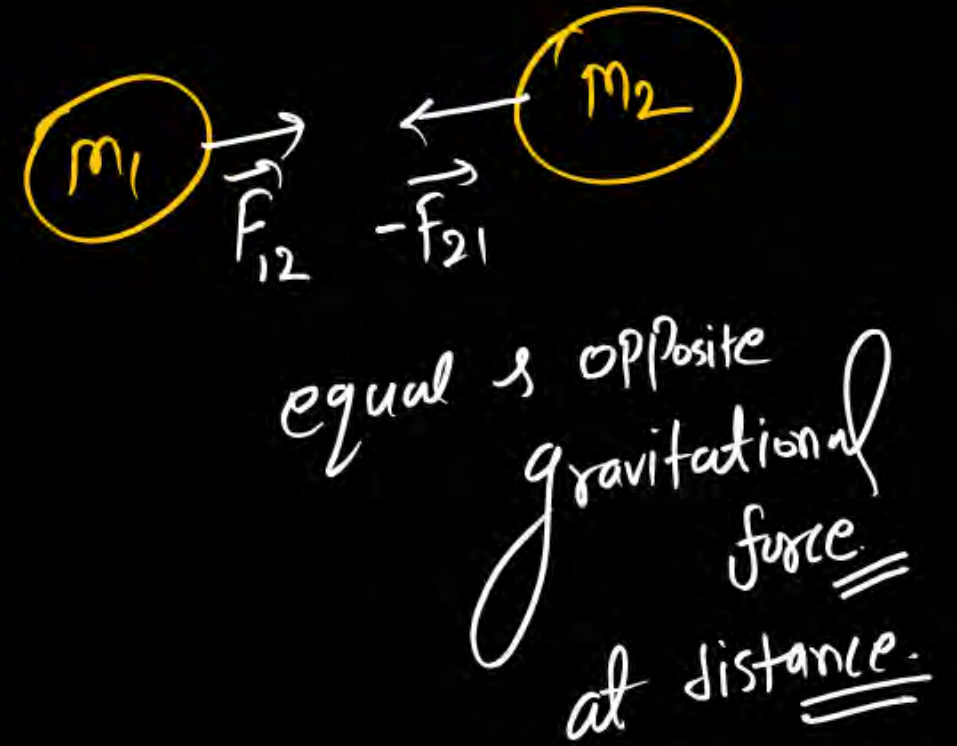 m₁
m₂
F⃗₁₂ -F⃗₂₁
equal & opposite
gravitational
force.
at distance.